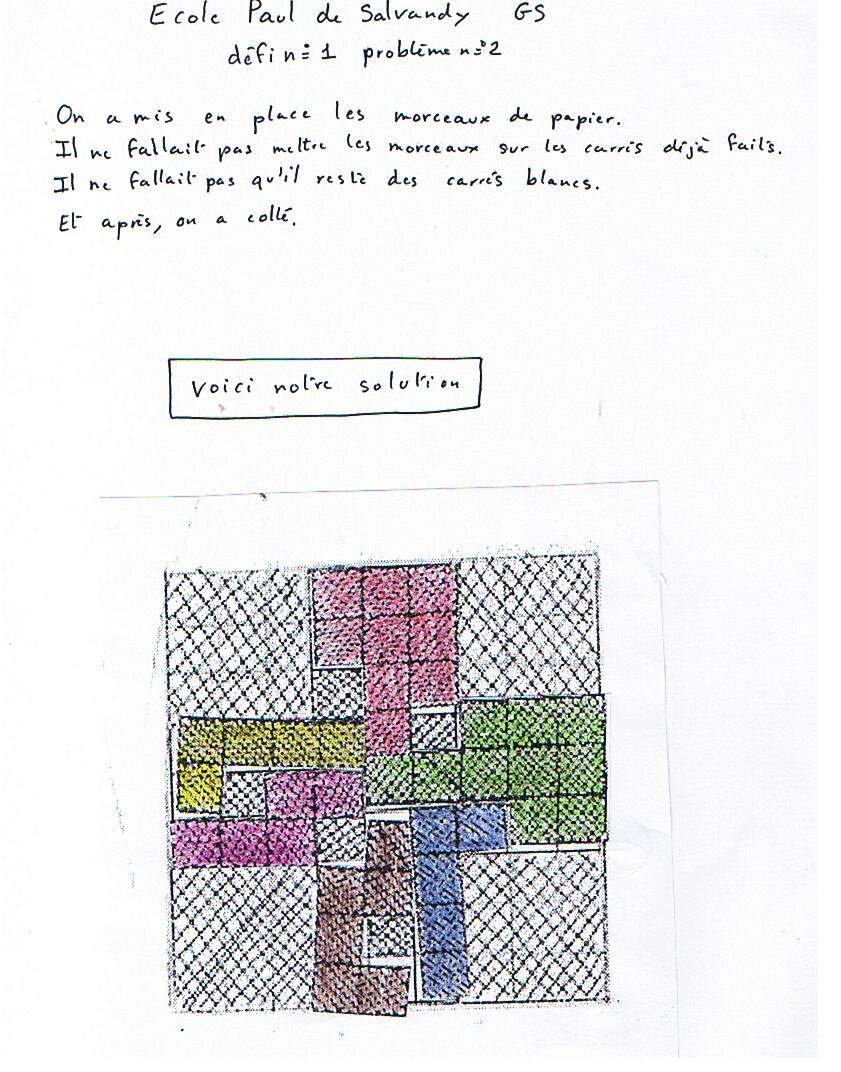 Ecole Paul de Salvandy GS
défi n° 1 problème n°2
On a mis en place les morceaux de papier.
Il ne fallait pas mettre les morceaux sur les carrés déjà faits.
Il ne fallait pas qu'il reste des carrés blancs.
Et après, on a collé.
voici notre solution